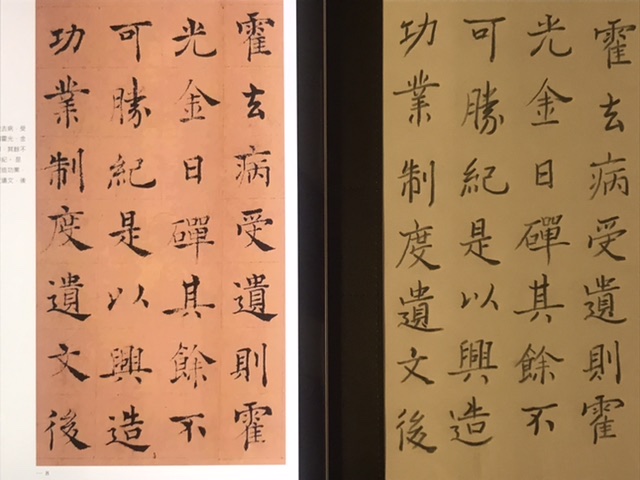 霍去病受遺則霍
光金日磾其餘不
可勝紀是以興造
功業制度遺文後
霍去病受遺則霍
光金日磾其餘不
可勝紀是以興造
功業制度遺文後